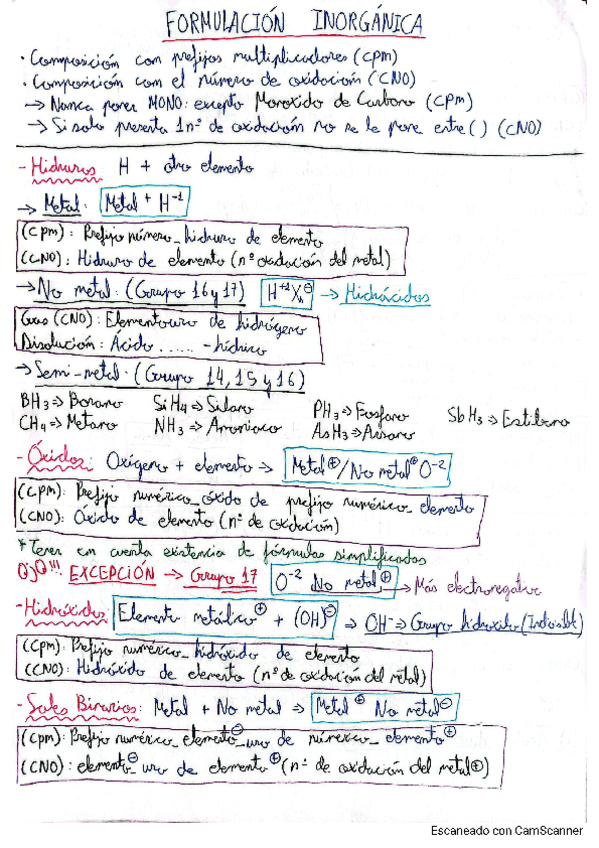 FORMULACIÓN INORGÁNICA
· Composición con prefijos multiplicadores (CPM)
· Composición con el número de oxidación (CNO)
→ Nunca poner MONO: excepto Monoxido de Carbono (CPM)
→ Si solo presenta 1 nº de oxidación no se le pone entre () (CNO)
- Hidruros: H + otro elemento
→ Metal: Metal⁺ H⁻¹
(CPM): Prefijo número_hidruro de elemento
(CNO): Hidruro de elemento (nº oxidación del metal)
→ No metal: (Grupo 16 y 17) H⁺¹X⊖ → Hidrácidos
Gas (CNO): Elementouro de hidrógeno
Disolución: Ácido ...... -hídrico
→ Semi-metal: (Grupo 14, 15 y 16)
BH₃ ⇒ Borano SiH₄ ⇒ Silano PH₃ ⇒ Fosfano SbH₃ ⇒ Estibano
CH₄ ⇒ Metano NH₃ ⇒ Amoniaco AsH₃ ⇒ Arsano
- Óxidos: Oxígeno + elemento ⇒ Metal⊕/No metal⊕ O⁻²
(CPM): Prefijo numérico_óxido de prefijo numérico_elemento
(CNO): Óxido de elemento (nº de oxidación)
* Tener en cuenta existencia de fórmulas simplificadas
OJO!!! EXCEPCIÓN → Grupo 17 O⁻² No metal⊕ → Más electronegativo
- Hidróxidos: Elemento metálico⊕ + (OH)⊖ ⇒ OH⁻ ⇒ Grupo hidroxilo (Indivisible)
(CPM): Prefijo numérico_hidróxido de elemento
(CNO): Hidróxido de elemento (nº de oxidación del metal)
- Sales Binarias: Metal + No metal ⇒ Metal⊕ No metal⊖
(CPM): Prefijo numérico_elemento⊖_uro de numérico_elemento⊕
(CNO): elemento⊖_uro de elemento⊕ (nº de oxidación del metal⊕)
Escaneado con CamScanner